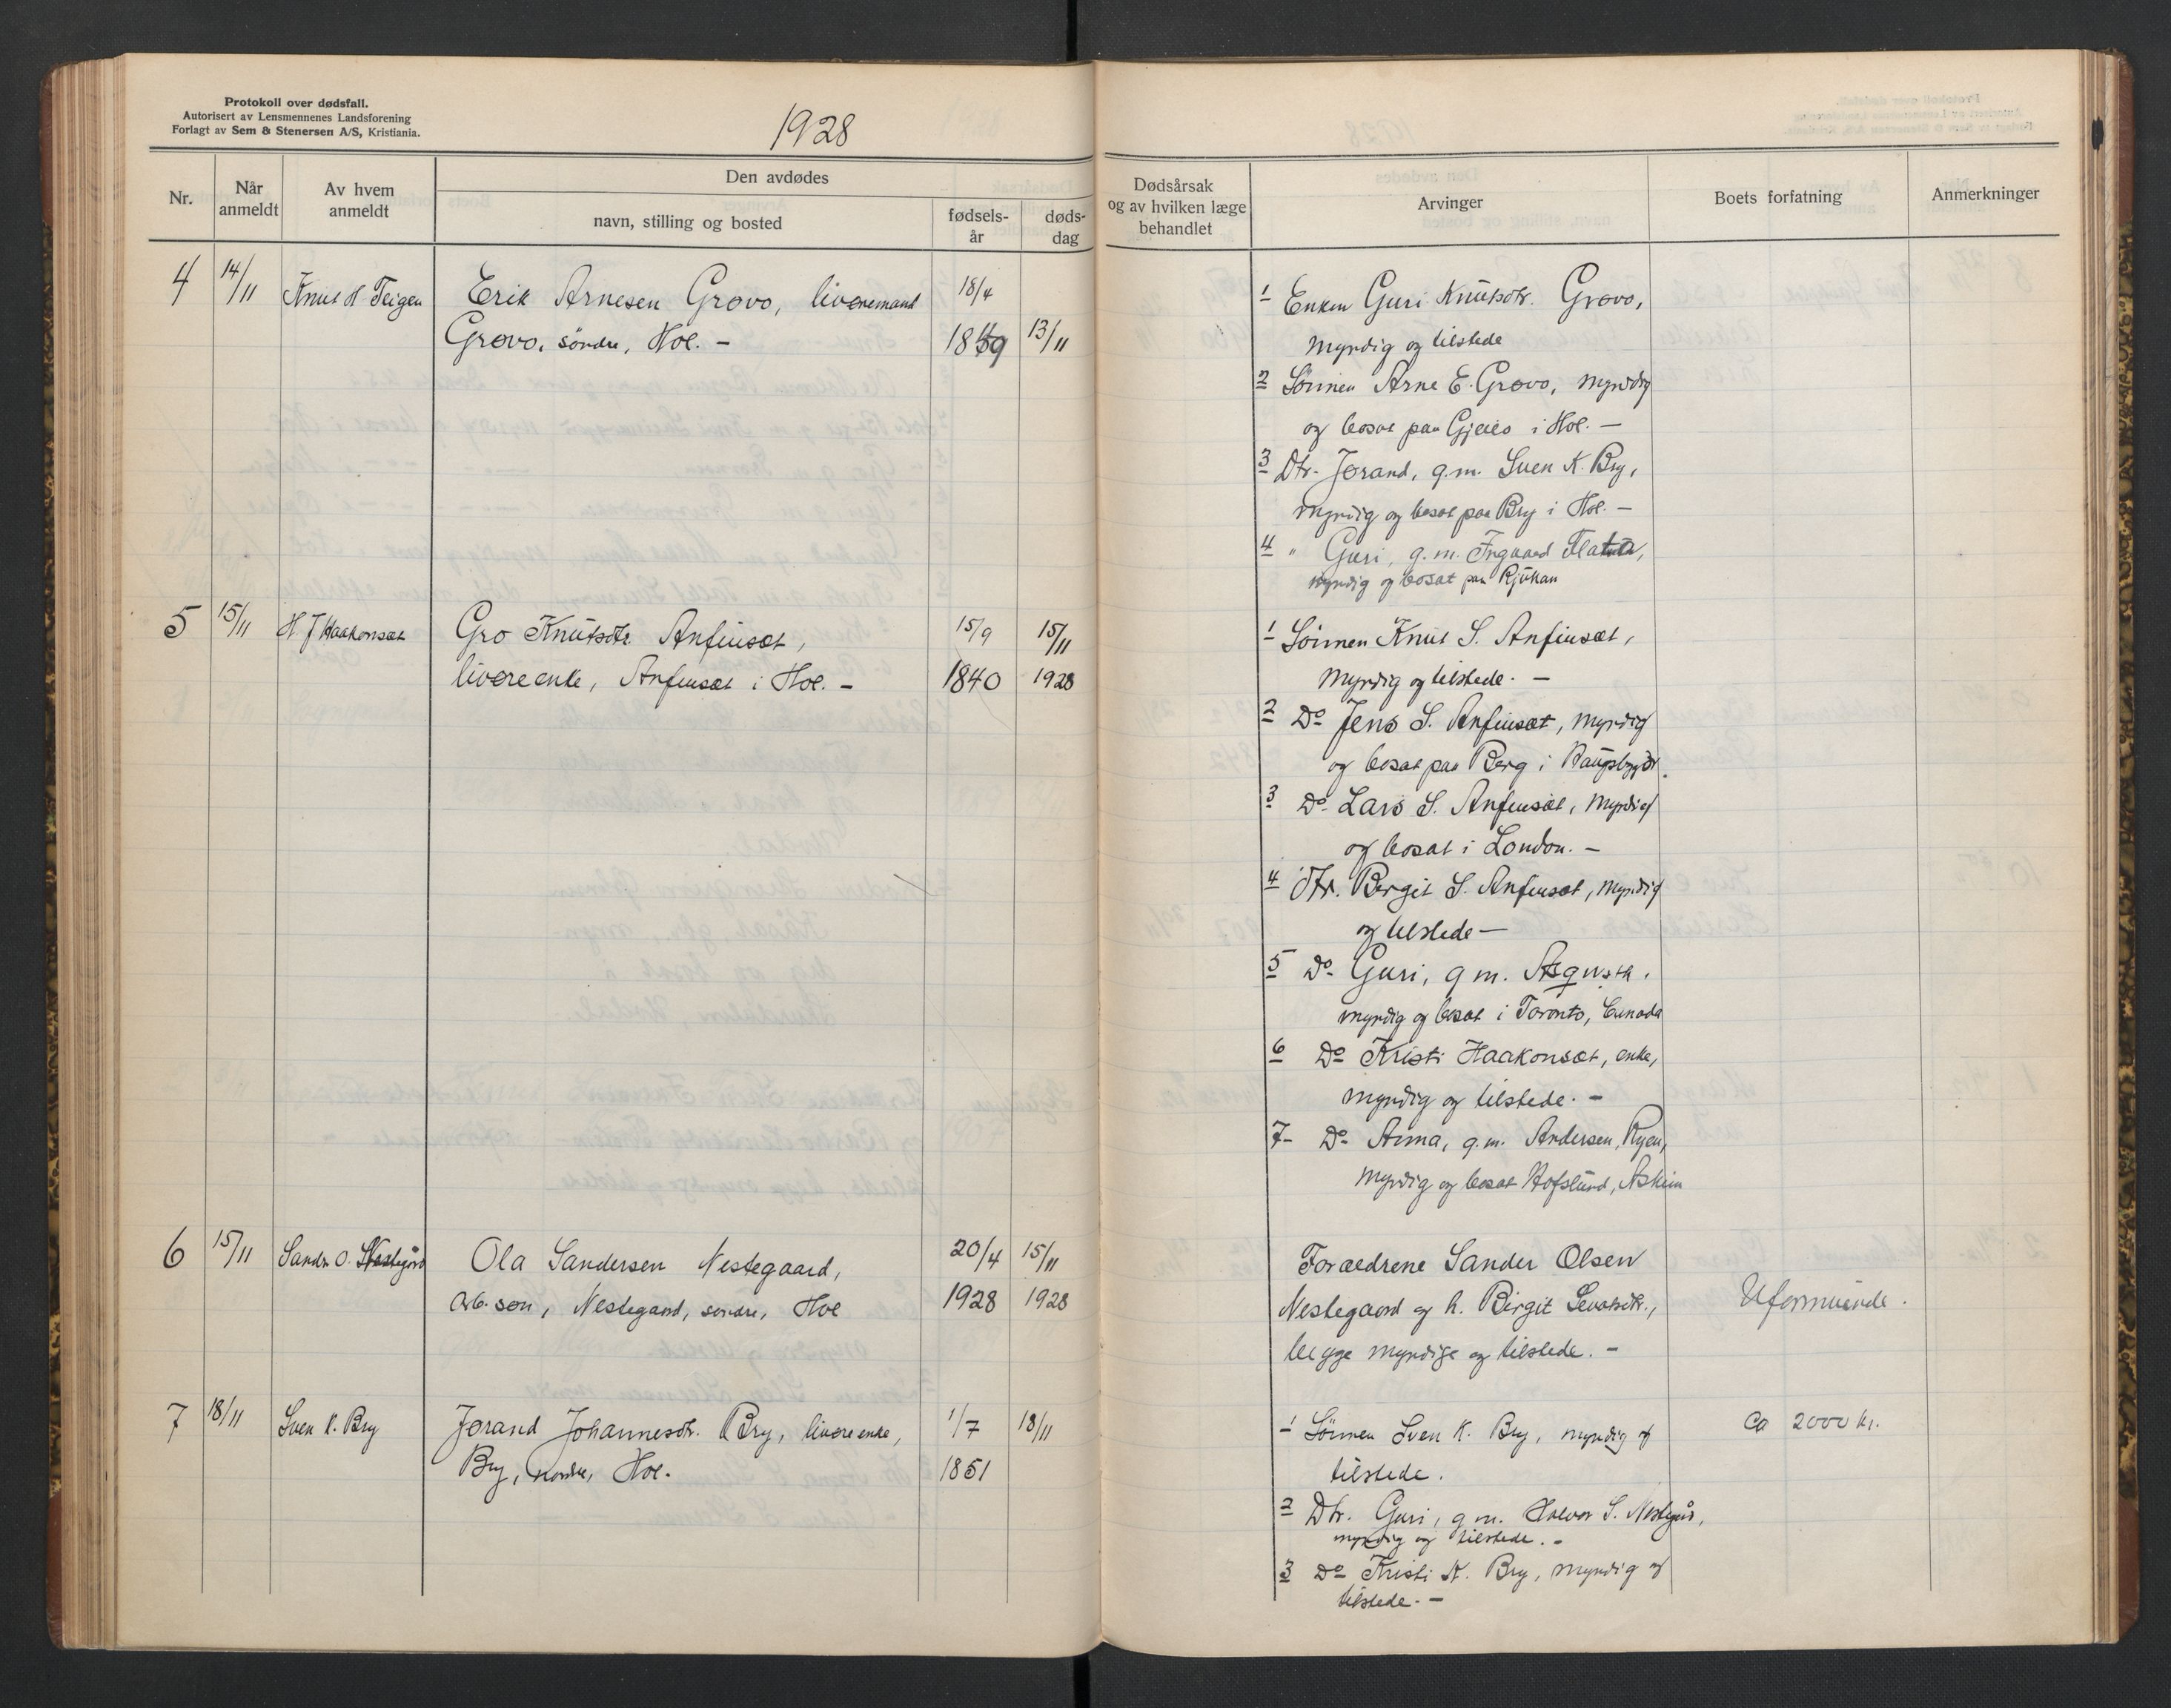 Protokoll over dødsfall.
Autorisert av Lensmennenes Landsforening
Forlagt av Sem & Stenersen A/S, Kristiania.
1928
Nr.
Når anmeldt
Av hvem anmeldt
Den avdødes
navn, stilling og bosted
fødsels-år
døds-dag
Dødsårsak og av hvilken læge behandlet
Arvinger
Boets forfatning
Anmerkninger
4 14/11 Knut H Teigen Erik Arnesen Grovo, livøremand 18/4
Grovo, söndre, Hol. - 13/11
1 Enken Guri Knutsdtr. Grovo,
myndig og tilstede
2 Sönnen Arne E. Grovo, myndig
og bosat paa i Hol. —
3 Dtr. Jørand, g.m. Sven K. Bry,
myndig og bosat paa Bry i Hol. —
4 " Guri, g.m. Ingvard
myndig og bosat paa Rjukan
5 15/11 H J Haakonsæt Gro Knutsdtr Anfinsæt, 15/9 15/11
livøreenke, Anfinsæt i Hol. - 1840 1928
1 Sönnen Knut S. Anfinsæt,
myndig og tilstede. —
2 Do Jens S. Anfinsæt, myndig
og bosat paa Berg i
3 Do Lars S. Anfinsæt, myndig
og bosat i London. —
4 Dtr. Bergit S. Anfinsæt, myndig
og tilstede —
5 Do Guri, g m.
myndig og bosat i Toronto, Canada
6 Do Kristi Haakonsæt, enke,
myndig og tilstede. -
7- Do Anna, g.m. Andersen, Ryen,
myndig og bosat Hofslund, Askim
6 15/11 Sander O. Nestegård Ola Sandersen Nestegaard, 20/4 15/11
Arb. søn, Nestegaard, søndre, Hol 1928 1928
Forældrene Sander Olsen
Nestegaard og h. Birgit
begge myndige og tilstede. -
Uformuende.
7 18/11 Sven K. Bry Jørand Johannesdtr. Bry, livøreenke, 1/7 18/11
Bry, nordre, Hol. 1851
1 Sönnen Sven K. Bry, myndig og
tilstede.
Ca 2000 kr.
2 Dtr. Guri, g m. Halvor S. Nestegård,
myndig og tilstede. -
3 Do Kristi K. Bry, myndig og
tilstede. -